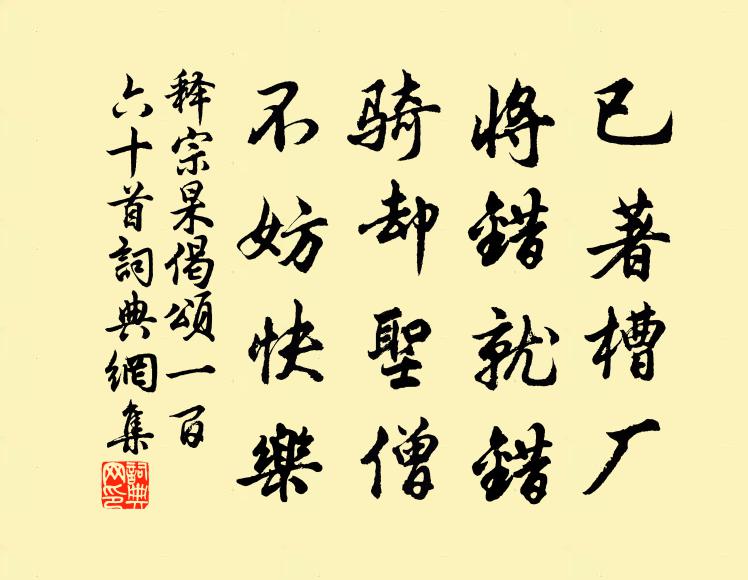 已著槽厂
将錯就錯
骑却聖僧
不妨快樂
释宗杲偈颂一百
六十首詞典網集
詞典網印